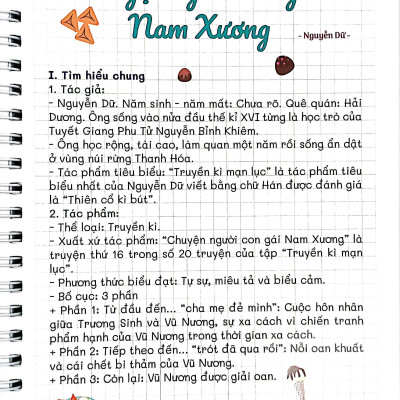 Nam Xương
- Nguyễn Dữ -
I. Tìm hiểu chung
1. Tác giả:
- Nguyễn Dữ. Năm sinh - năm mất: Chưa rõ. Quê quán: Hải
Dương. Ông sống vào nửa đầu thế kỉ XVI từng là học trò của
Tuyết Giang Phu Tử Nguyễn Bỉnh Khiêm.
- Ông học rộng, tài cao, làm quan một năm rồi sống ẩn dật
ở vùng núi rừng Thanh Hóa.
- Tác phẩm tiêu biểu: “Truyền kì mạn lục” là tác phẩm tiêu
biểu nhất của Nguyễn Dữ viết bằng chữ Hán được đánh giá
là “Thiên cổ kì bút”.
2. Tác phẩm:
- Thể loại: Truyền kì.
- Xuất xứ tác phẩm: “Chuyện người con gái Nam Xương” là
truyện thứ 16 trong số 20 truyện của tập “Truyền kì mạn
lục”.
- Phương thức biểu đạt: Tự sự, miêu tả và biểu cảm.
- Bố cục: 3 phần
+ Phần 1: Từ đầu đến... “cha mẹ đẻ mình”: Cuộc hôn nhân
giữa Trương Sinh và Vũ Nương, sự xa cách vì chiến tranh
phẩm hạnh của Vũ Nương trong thời gian xa cách.
+ Phần 2: Tiếp theo đến... “trót đã qua rồi”: Nỗi oan khuất
và cái chết bi thảm của Vũ Nương.
+ Phần 3: Còn lại: Vũ Nương được giải oan.